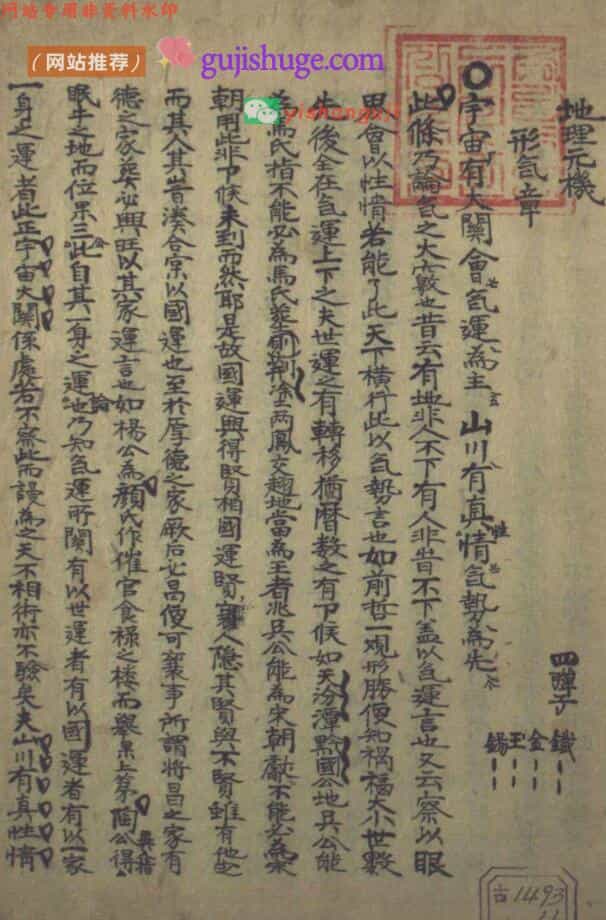 网站专用非资料水印
（网站推荐）
gujishuge.com
yishengxj
地理元機
形氣章
四彈子
鐵
金
玉
錫
宇宙有大關會氣運為主山川有真性情氣勢為先
此條乃論氣之大竅也昔云有地非人不下有人非昔不下盖以氣運言也又云察以眼
界會以性情若能了此天下橫行此以氣勢言也如前哲一观形勝便知禍福大小世數
先後全在氣運上下之夫世運之有轉移猶曆數之有卩候如天汾潭黔國公地吳公能
為馬氏指不能必為馬氏塟荊塗两鳳交趨地當為王者兆吳公能為宋朝獻不能必為宋
朝用此非卩候未到而然耶是故國運興得賢相國運賢人隐其賢與不賢雖有地必
而其人其昔湊合宲以國運也至於厚德之家厥后必昌便可襄事所謂将昌之家有
德之家塟必興旺以其家運言也如楊公為顔氏作催官食祿之棲而舉果上第陶公得
眠牛之地而位果三公此自其一身之運論也乃知氣運所関有以世運者有以國運者有以一家
一身之運者此正宇宙大關係處若不察此而謾為之天不相術亦不驗矣夫山川有真性情
古1493